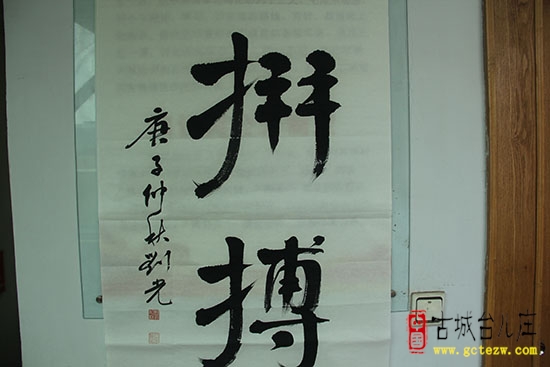 拼搏
庚子仲秋劉光
中国
古城台儿庄
www.gctezw.com